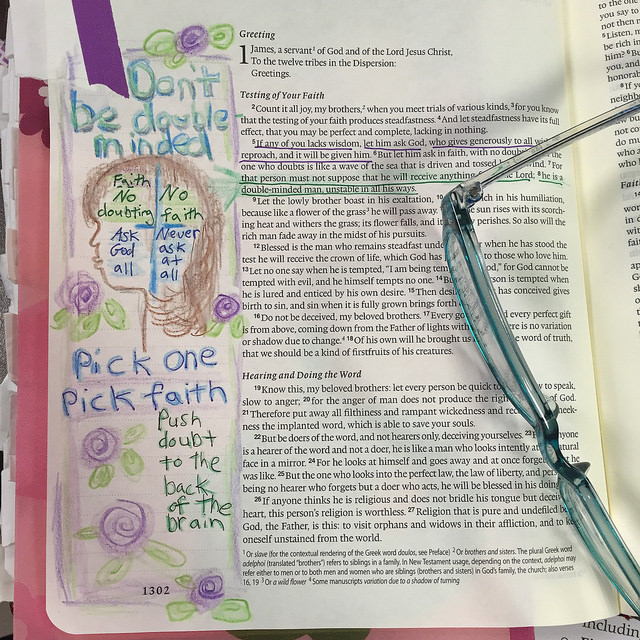 Don't
be double
minded
Faith
No
doubting
No
faith
Ask
God
all
Never
ask
at
all
Pick one
Pick faith
Push
doubt
to the
back
of the
brain
1302
Greeting
1 James, a servant1 of God and of the Lord Jesus Christ,
To the twelve tribes in the Dispersion:
Greetings.
Testing of Your Faith
2 Count it all joy, my brothers,2 when you meet trials of various kinds, 3 for you know
that the testing of your faith produces steadfastness. 4 And let steadfastness have its full
effect, that you may be perfect and complete, lacking in nothing.
5 If any of you lacks wisdom, let him ask God, who gives generously to all
reproach, and it will be given him. 6 But let him ask in faith, with no
the one who doubts is like a wave of the sea that is driven and tossed wind. 7 For
that person must not suppose that he will receive anything Lord; 8 he is a
double-minded man, unstable in all his ways.
9 Let the lowly brother boast in his exaltation, 10 in his humiliation,
because like a flower of the grass3 he will pass away. sun rises with its scorch-
ing heat and withers the grass; its flower falls, and perishes. So also will the
rich man fade away in the midst of his pursuits.
12 Blessed is the man who remains steadfast when he has stood the
test he will receive the crown of life, which God has to those who love him.
13 Let no one say when he is tempted, "I am being for God cannot be
tempted with evil, and he himself tempts no one. 14 is tempted when
he is lured and enticed by his own desire. 15 Then has conceived gives
birth to sin, and sin when it is fully grown brings
16 Do not be deceived, my beloved brothers. 17 Every every perfect gift
is from above, coming down from the Father of lights there is no variation
or shadow due to change.4 18 Of his own will he brought word of truth,
that we should be a kind of firstfruits of his creatures.
Hearing and Doing the Word
19 Know this, my beloved brothers: let every person be quick to speak,
slow to anger; 20 for the anger of man does not produce the of God.
21 Therefore put away all filthiness and rampant wickedness and
ness the implanted word, which is able to save your souls.
22 But be doers of the word, and not hearers only, deceiving yourselves.
is a hearer of the word and not a doer, he is like a man who looks intently
face in a mirror. 24 For he looks at himself and goes away and at once
was like. 25 But the one who looks into the perfect law, the law of liberty, and
being no hearer who forgets but a doer who acts, he will be blessed in his
26 If anyone thinks he is religious and does not bridle his tongue but
heart, this person's religion is worthless. 27 Religion that is pure and undefiled
God, the Father, is this: to visit orphans and widows in their affliction, and to
oneself unstained from the world.
1 Or slave (for the contextual rendering of the Greek word doulos, see Preface) 2 Or brothers and sisters. The plural Greek word
adelphoi (translated "brothers") refers to siblings in a family. In New Testament usage, depending on the context, adelphoi may
refer either to men or to both men and women who are siblings (brothers and sisters) in God's family, the church; also verses
16, 19 3 Or a wild flower 4 Some manuscripts variation due to a shadow of turning